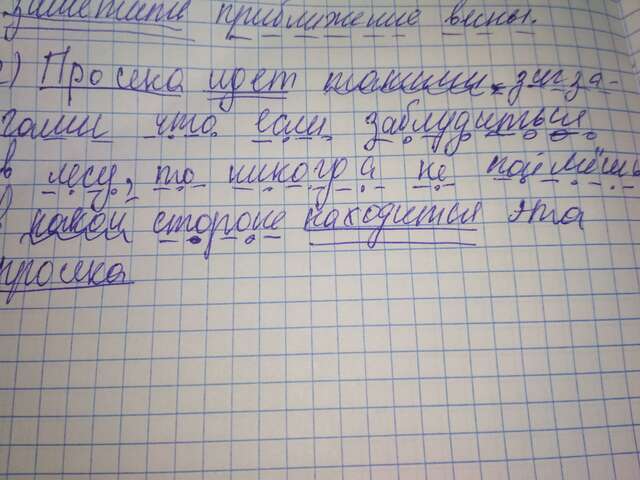 заметить приближение весны.
с) Просека идет такими зигза-
гами что если заблудиться
в лесу, то никогда не поймёшь
в какой стороне находится эта
просека